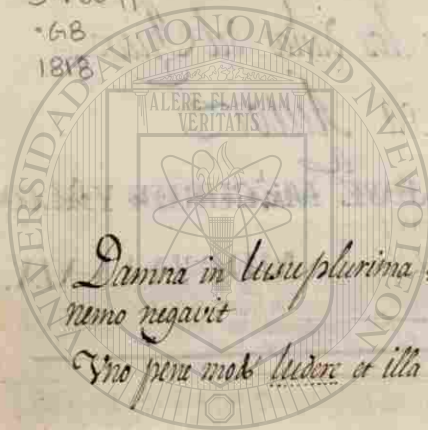 ·G8
1818
UNIVERSIDAD AUTONOMA DE NUEVO LEON
ALERE FLAMMAM
VERITATIS
Damna in lusu plurima
nemo negavit
Vno pene modo ludere et illa